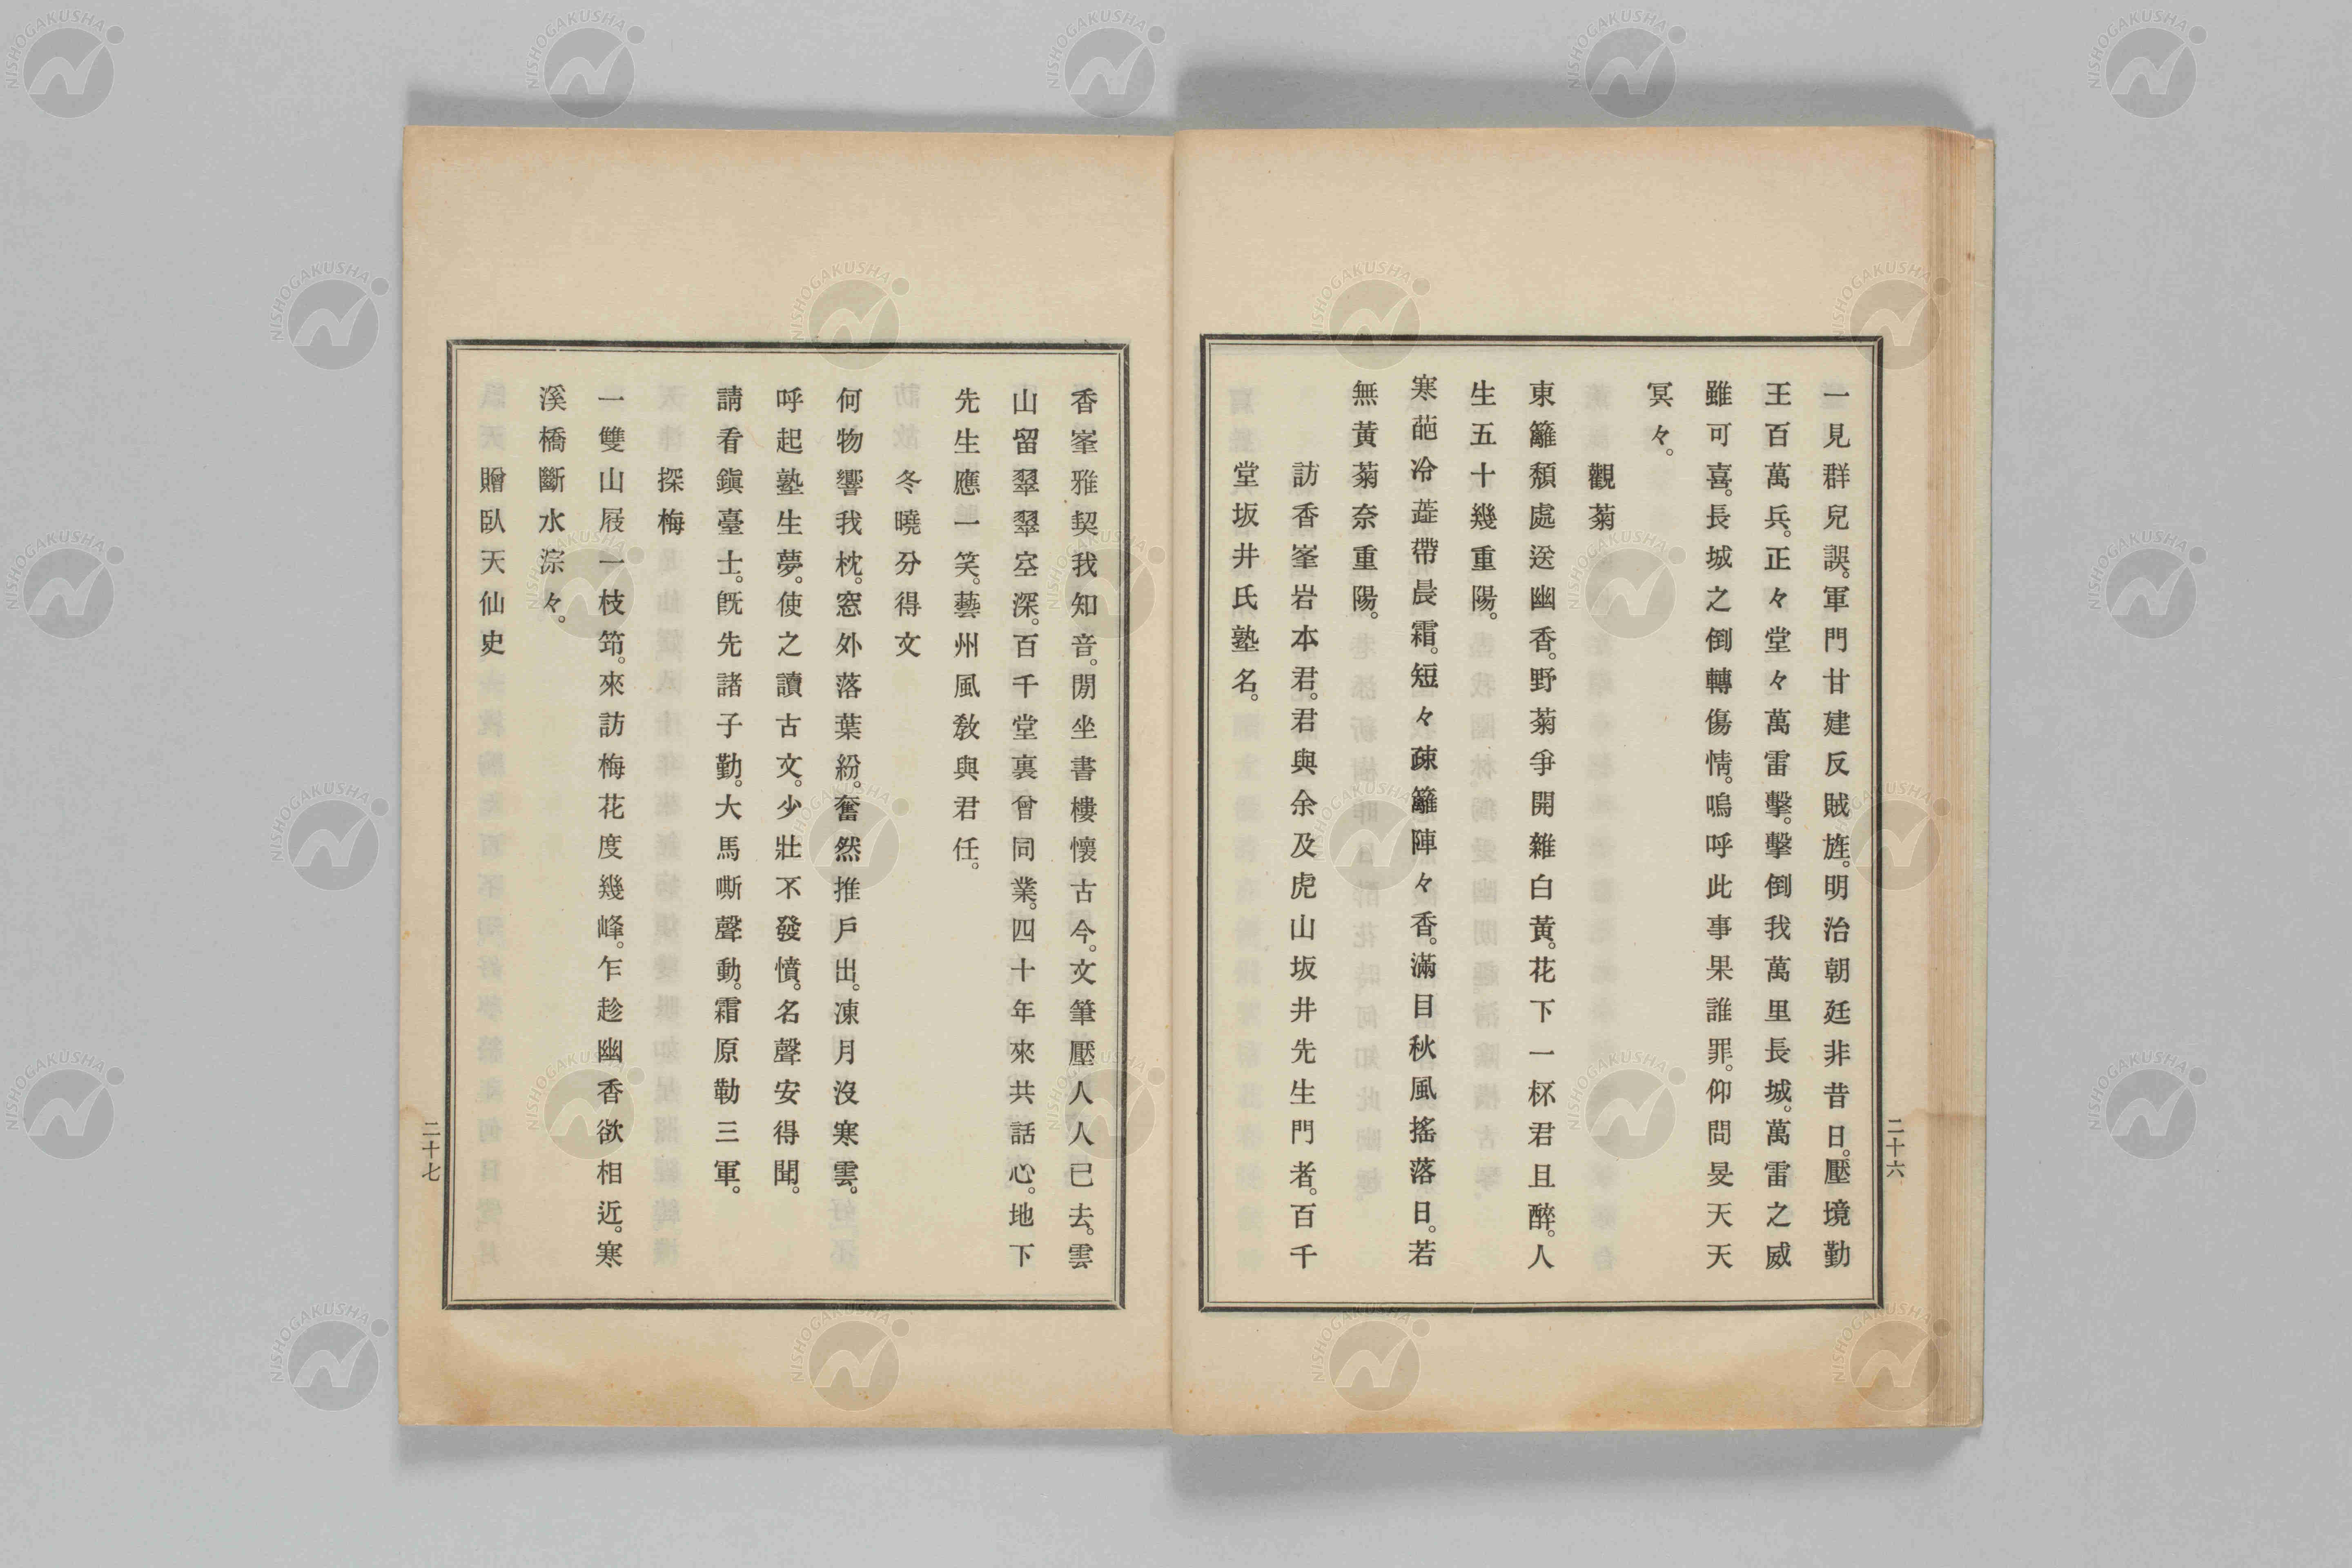 一見群兒誤。軍門甘建反賊旌。明治朝廷非昔日。壓境勤
王百萬兵。正々堂々萬雷擊。擊倒我萬里長城。萬雷之威
雖可喜。長城之倒轉傷情。嗚呼此事果誰罪。仰問旻天天
冥々。
觀菊
東籬頹處送幽香。野菊爭開雜白黃。花下一杯君且醉。人
生五十幾重陽。
寒葩冷蕋帶晨霜。短々疎籬陣々香。滿目秋風搖落日。若
無黃菊奈重陽。
訪香峯岩本君。君與余及虎山坂井先生門者。百千
堂坂井氏塾名。
二十六
香峯雅契我知音。閒坐書樓懷古今。文筆壓人人已去。雲
山留翠翠空深。百千堂裏曾同業。四十年來共話心。地下
先生應一笑。藝州風敎與君任。
冬曉分得文
何物響我枕。窓外落葉紛。奮然推戶出。凍月沒寒雲。
呼起塾生夢。使之讀古文。少壯不發憤。名聲安得聞。
請看鎭臺士。旣先諸子勤。大馬嘶聲動。霜原勒三軍。
探梅
一雙山屐一枝筇。來訪梅花度幾峰。乍趁幽香欲相近。寒
溪橋斷水淙々。
贈臥天仙史
二十七
NISHOGAKUSHA